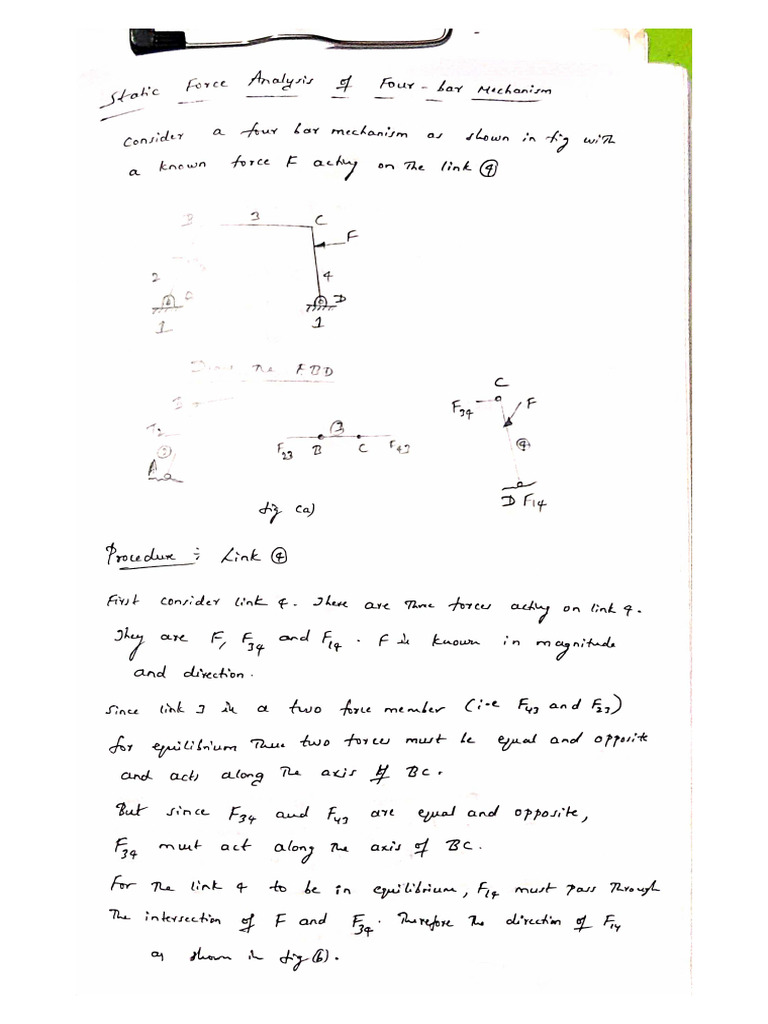 Static Force Analysis of Four-bar Mechanism
Consider a four bar mechanism as shown in fig with
a known force F acting on the link ④
3 C
F
2 4
D
1 1
the FBD
C
F34 F
③ ④
F23 B C F43
A
D F14
fig (a)
Procedure :- Link ④
First consider link 4. There are three forces acting on link 4.
They are F, F34 and F14. F is known in magnitude
and direction.
Since link 3 is a two force member (i.e F43 and F23)
for equilibrium these two forces must be equal and opposite
and acts along the axis of BC.
But since F34 and F43 are equal and opposite,
F34 must act along the axis of BC.
For the link 4 to be in equilibrium, F14 must pass through
the intersection of F and F34. Therefore the direction of F14
as shown in fig (b).